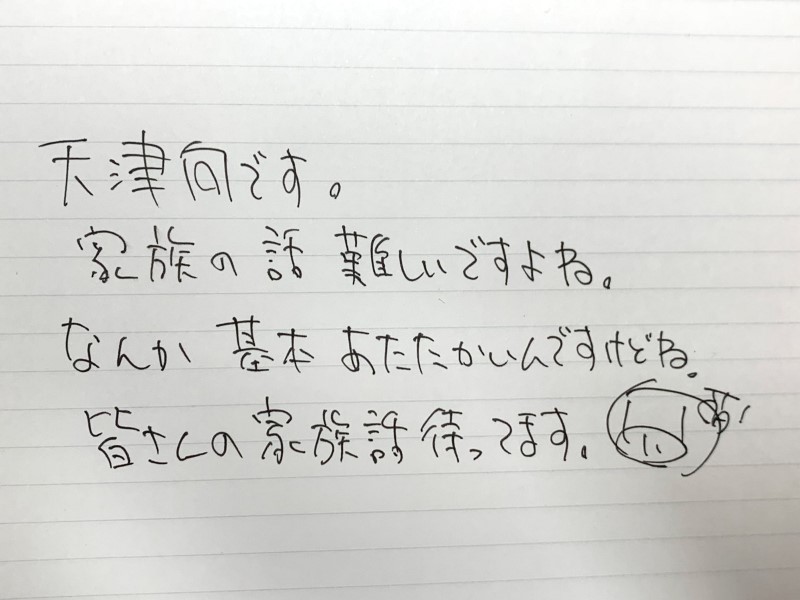 天津向です。
家族の話 難しいですよね。
なんか 基本 あたたかいんですけどね。
皆さんの家族話待ってます。